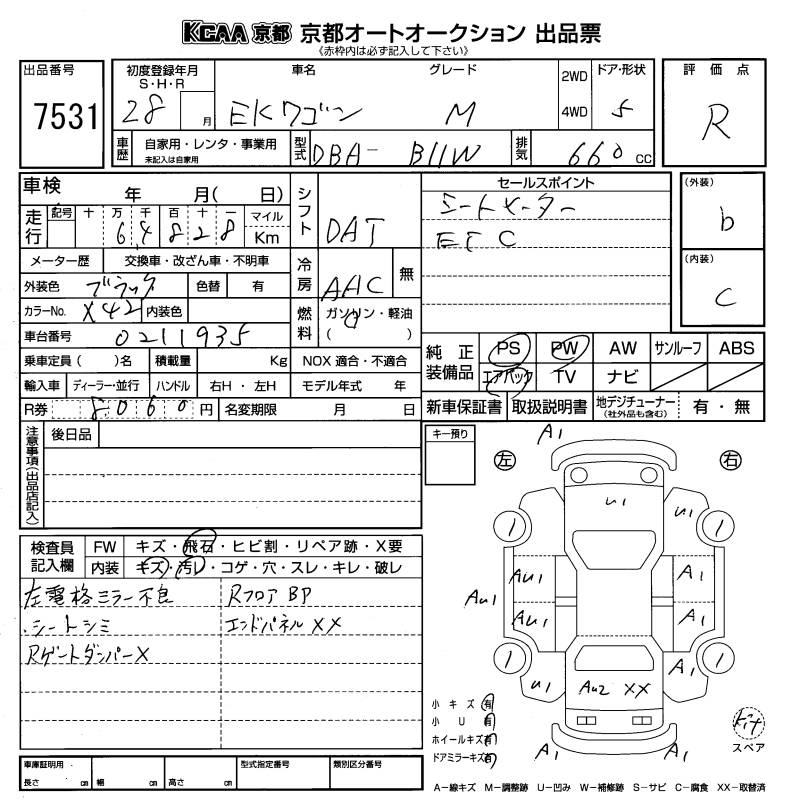 KCAA 京都 京都オートオークション 出品票
《赤枠内は必ず記入して下さい》
出品番号
7531
初度登録年月
S・H・R
28 月
車名
EKワゴン
グレード
M
2WD
4WD
ドア・形状
5
評価点
R
車歴
自家用・レンタ・事業用
未記入は自家用
型式
DBA- B11W
排気
660 cc
車検 年 月( 日)
走行
記号 十 万 千 百 十 一
6 4 8 2 8
マイル
Km
シフト
DAT
セールスポイント
シートヒーター
ETC
(外装)
b
(内装)
C
メーター歴 交換車・改ざん車・不明車
外装色 ブラック 色替 有
冷房
AAC
無
カラーNo. X42 内装色
燃料
ガソリン・軽油
( )
車台番号 0211935
乗車定員( )名 積載量 Kg NOX 適合・不適合
輸入車 ディーラー・並行 ハンドル 右H・左H モデル年式 年
R券 8,060 円 名変期限 月 日
純正装備品
PS PW AW サンルーフ ABS
エアバック TV ナビ
新車保証書 取扱説明書 地デジチューナー
(社外品も含む)
有・無
注意事項(出品店記入)
後日品
キー預り
A1
左
右
U1 U1
AU1 AU1 A1
AU1 A1
A1
U1 AU2 XX
A1 A1
検査員記入欄
FW キズ・飛石・ヒビ割・リペア跡・X要
内装 キズ・汚レ・コゲ・穴・スレ・キレ・破レ
左電格ミラー不良
Rフロア BP
・シートシミ
エンドパネル XX
RゲートダンパーX
小キズ 有
小U 有
ホイールキズ 有
ドアミラーキズ 有
Kit
スペア
車庫証明用
長さ cm 幅 cm 高さ cm
型式指定番号
類別区分番号
A−線キズ M−調整跡 U−凹み W−補修跡 S−サビ C−腐食 XX−取替済